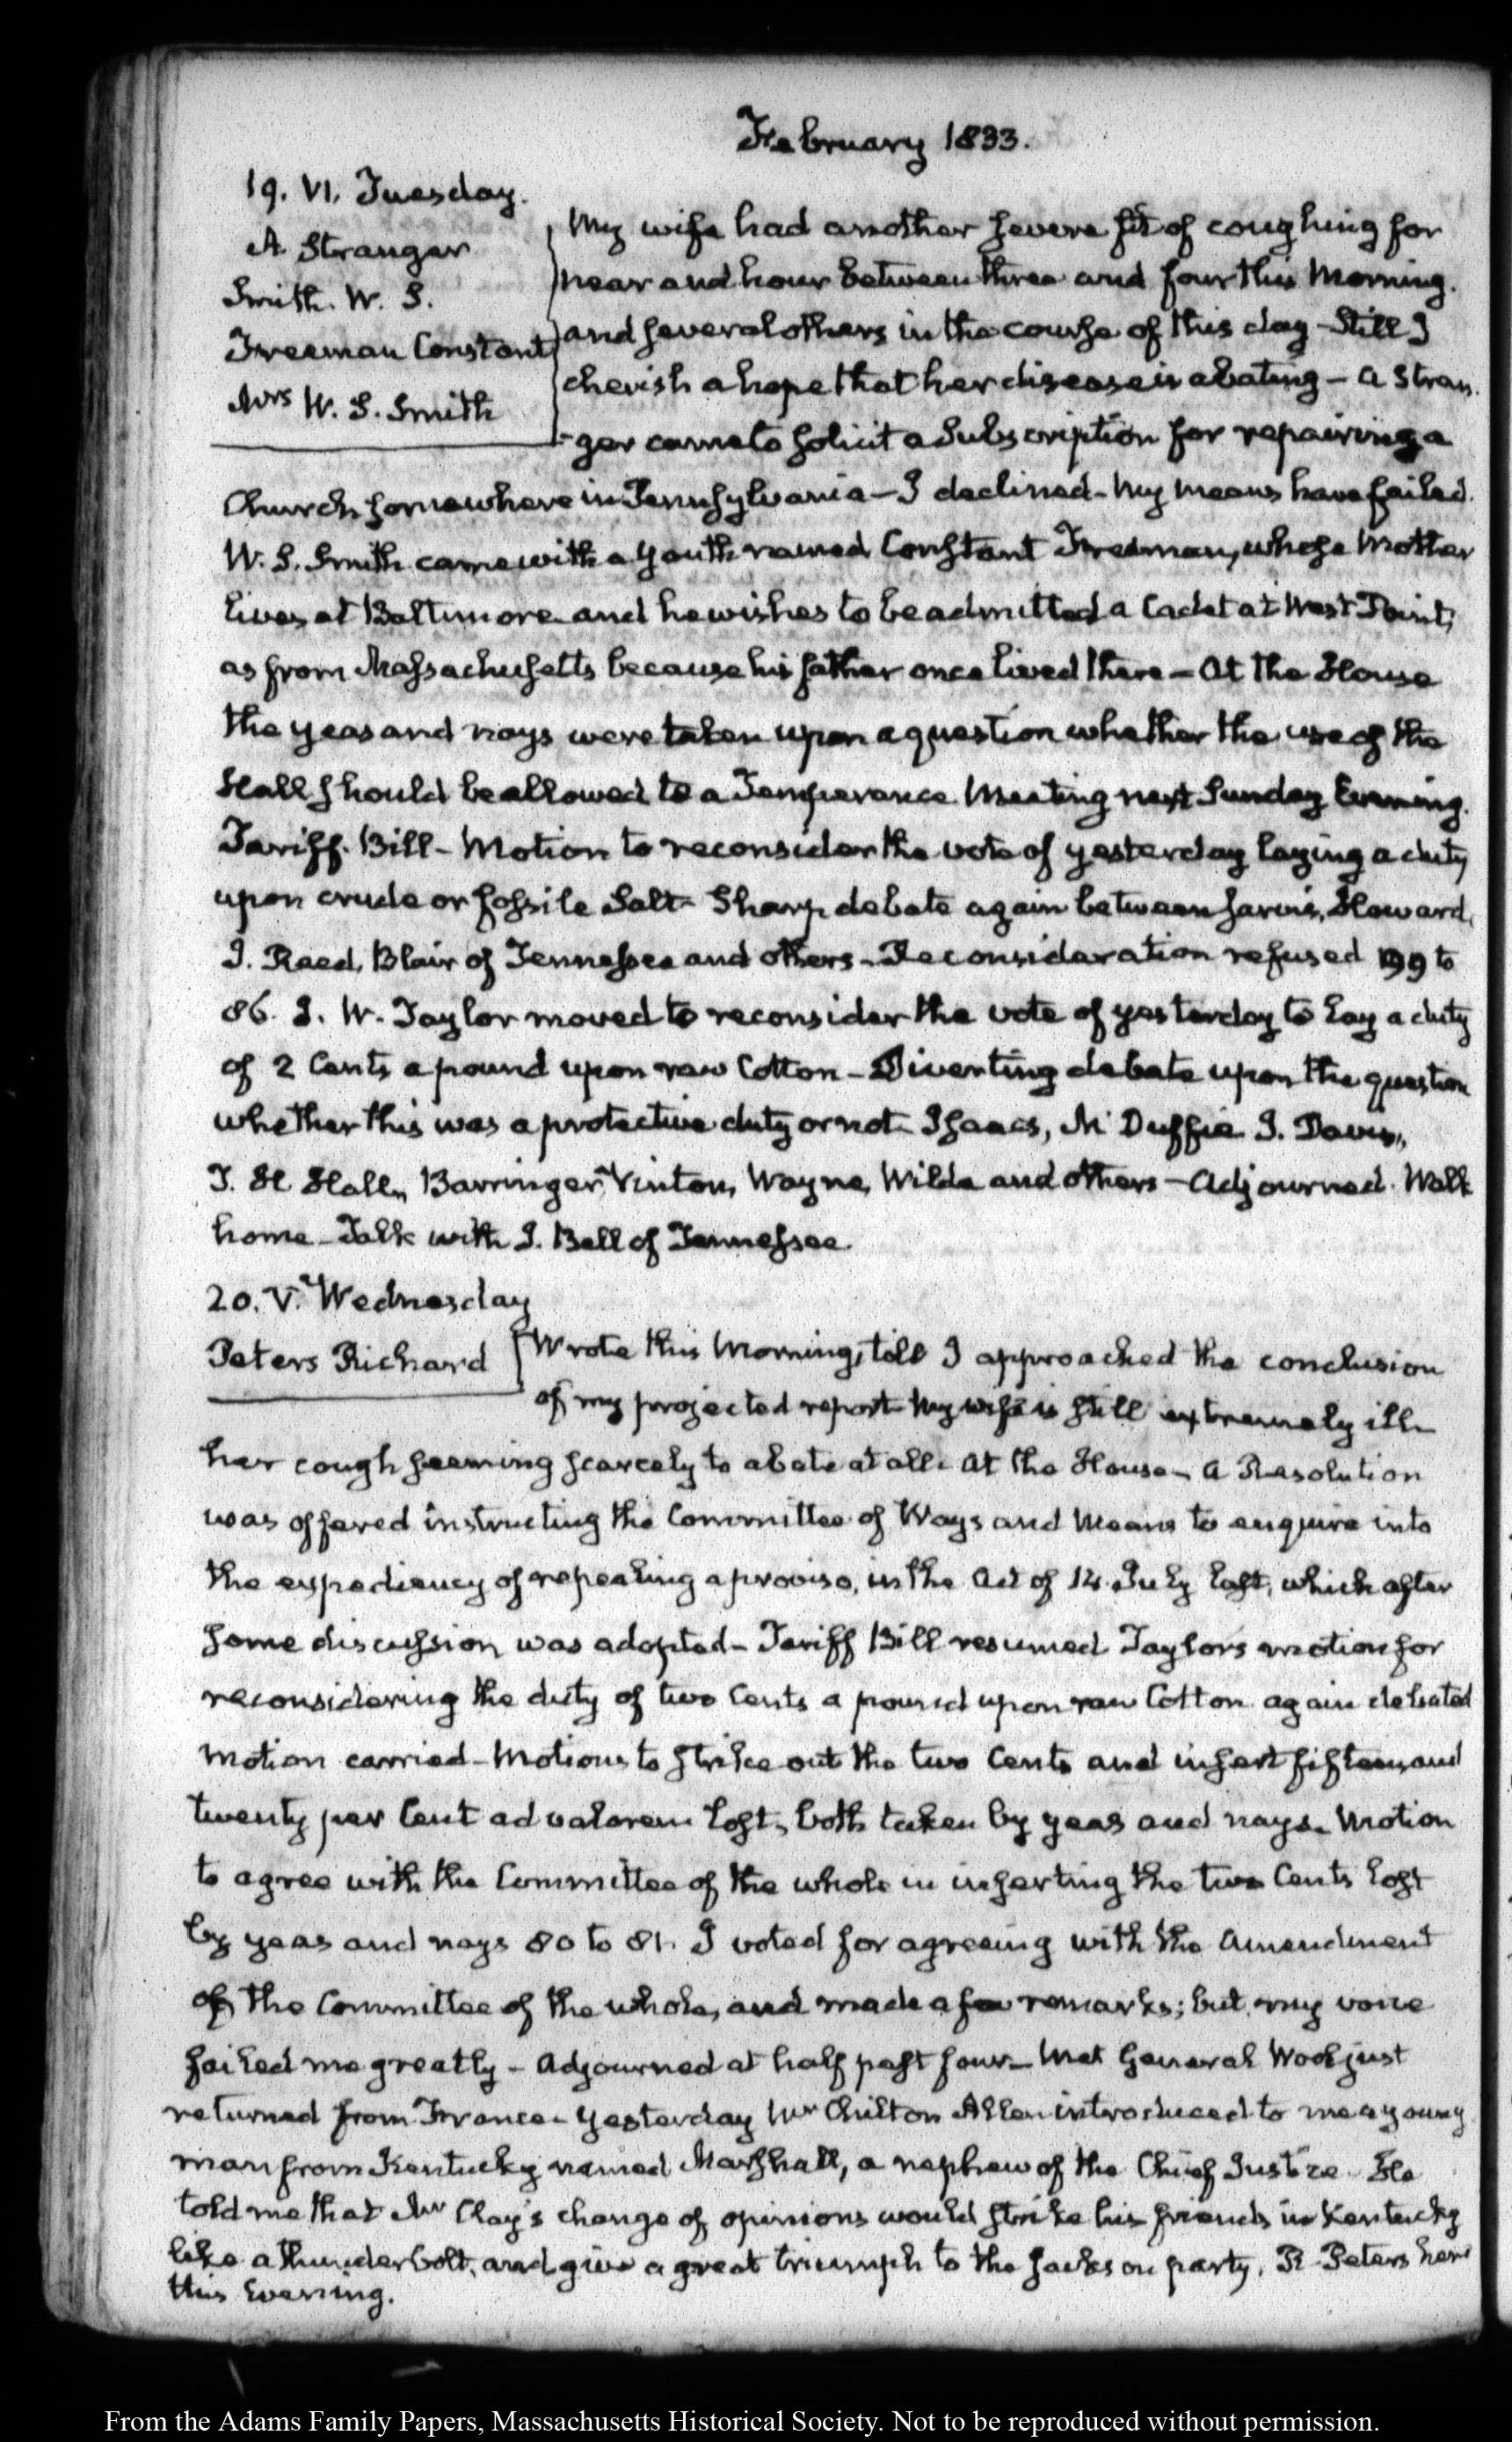 February 1833.
19. VI. Tuesday.
A Stranger
Smith. W. S.
Freeman Constant
Mrs W. S. Smith
My wife had another severe fit of coughing for
near and hour between three and four this Morning.
and several others in the course of this day - Still I
cherish a hope that her disease is abating - a Stran-
-ger came to solicit a Subscription for repairing a
Church somewhere in Pennsylvania - I declined - My means have failed.
W. S. Smith came with a Youth named Constant Freeman, whose Mother
lives at Baltimore and he wishes to be admitted a Cadet at West Point,
as from Massachusetts because his father once lived there - At the House
the yeas and nays were taken upon a question whether the use of the
Hall should be allowed to a Temperance Meeting next Sunday Evening.
Tariff. Bill - Motion to reconsider the vote of yesterday laying a duty
upon crude or fossile Salt - Sharp debate again between Jarvis, Howard,
J. Reed, Blair of Tennessee and others - Reconsideration refused to
86. J. W. Taylor moved to reconsider the vote of yesterday to lay a duty
of 2 Cents a pound upon raw Cotton - Diverting debate upon the question
whether this was a protective duty or not - Isaacs, Mc Duffie J. Davis,
T. H Hall, Barringer, Vinton, Wayne, Wilde and others - Adjourned. Walk
home - Talk with J. Bell of Tennessee.
20. V. Wednesday
Peters Richard
Wrote this Morning, till I approached the conclusion
of my projected report - My wife is still extremely ill -
her cough seeming scarcely to abate at all. At the House - a Resolution
was offered instructing the Committee of Ways and Means to enquire into
the expediency of repealing a proviso, in the Act of 14 July last, which after
some discussion was adopted - Tariff Bill resumed Taylors motion for
reconsidering the duty of two Cents a pound upon raw Cotton again debated
Motion carried - Motions to strike out the two Cents and insert fifteen, and
twenty per Cent ad valorem lost, both taken by yeas and nays. Motion
to agree with the Committee of the whole in inserting the two Cents lost
by yeas and nays 80 to 81. I voted for agreeing with the Amendment
of the Committee of the whole, and made a few remarks; but my voice
failed me greatly - Adjourned at half past four - Met General Wool just
returned from France - Yesterday Mr Chilton Allen introduced to me a young
man from Kentucky named Marshall, a nephew of the Chief Justice - He
told me that Mr Clay's change of opinions would strike his friends in Kentucky
like a thunderbolt, and give a great triumph to the Jackson party, R. Peters here
this Evening.
From the Adams Family Papers, Massachusetts Historical Society. Not to be reproduced without permission.